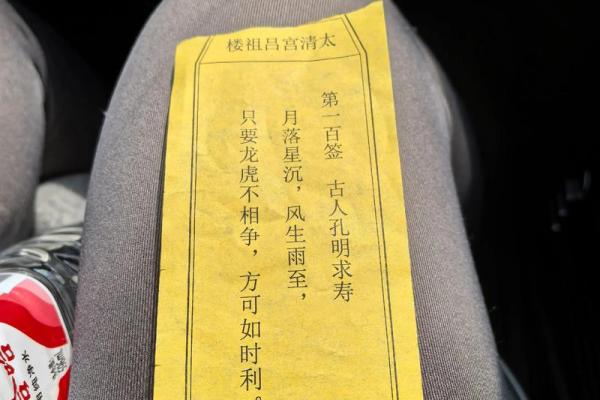 太清宫吕祖楼
第一百签 古人孔明求寿
月落星沉，风生雨至，
只要龙虎不相争，方可如时利。